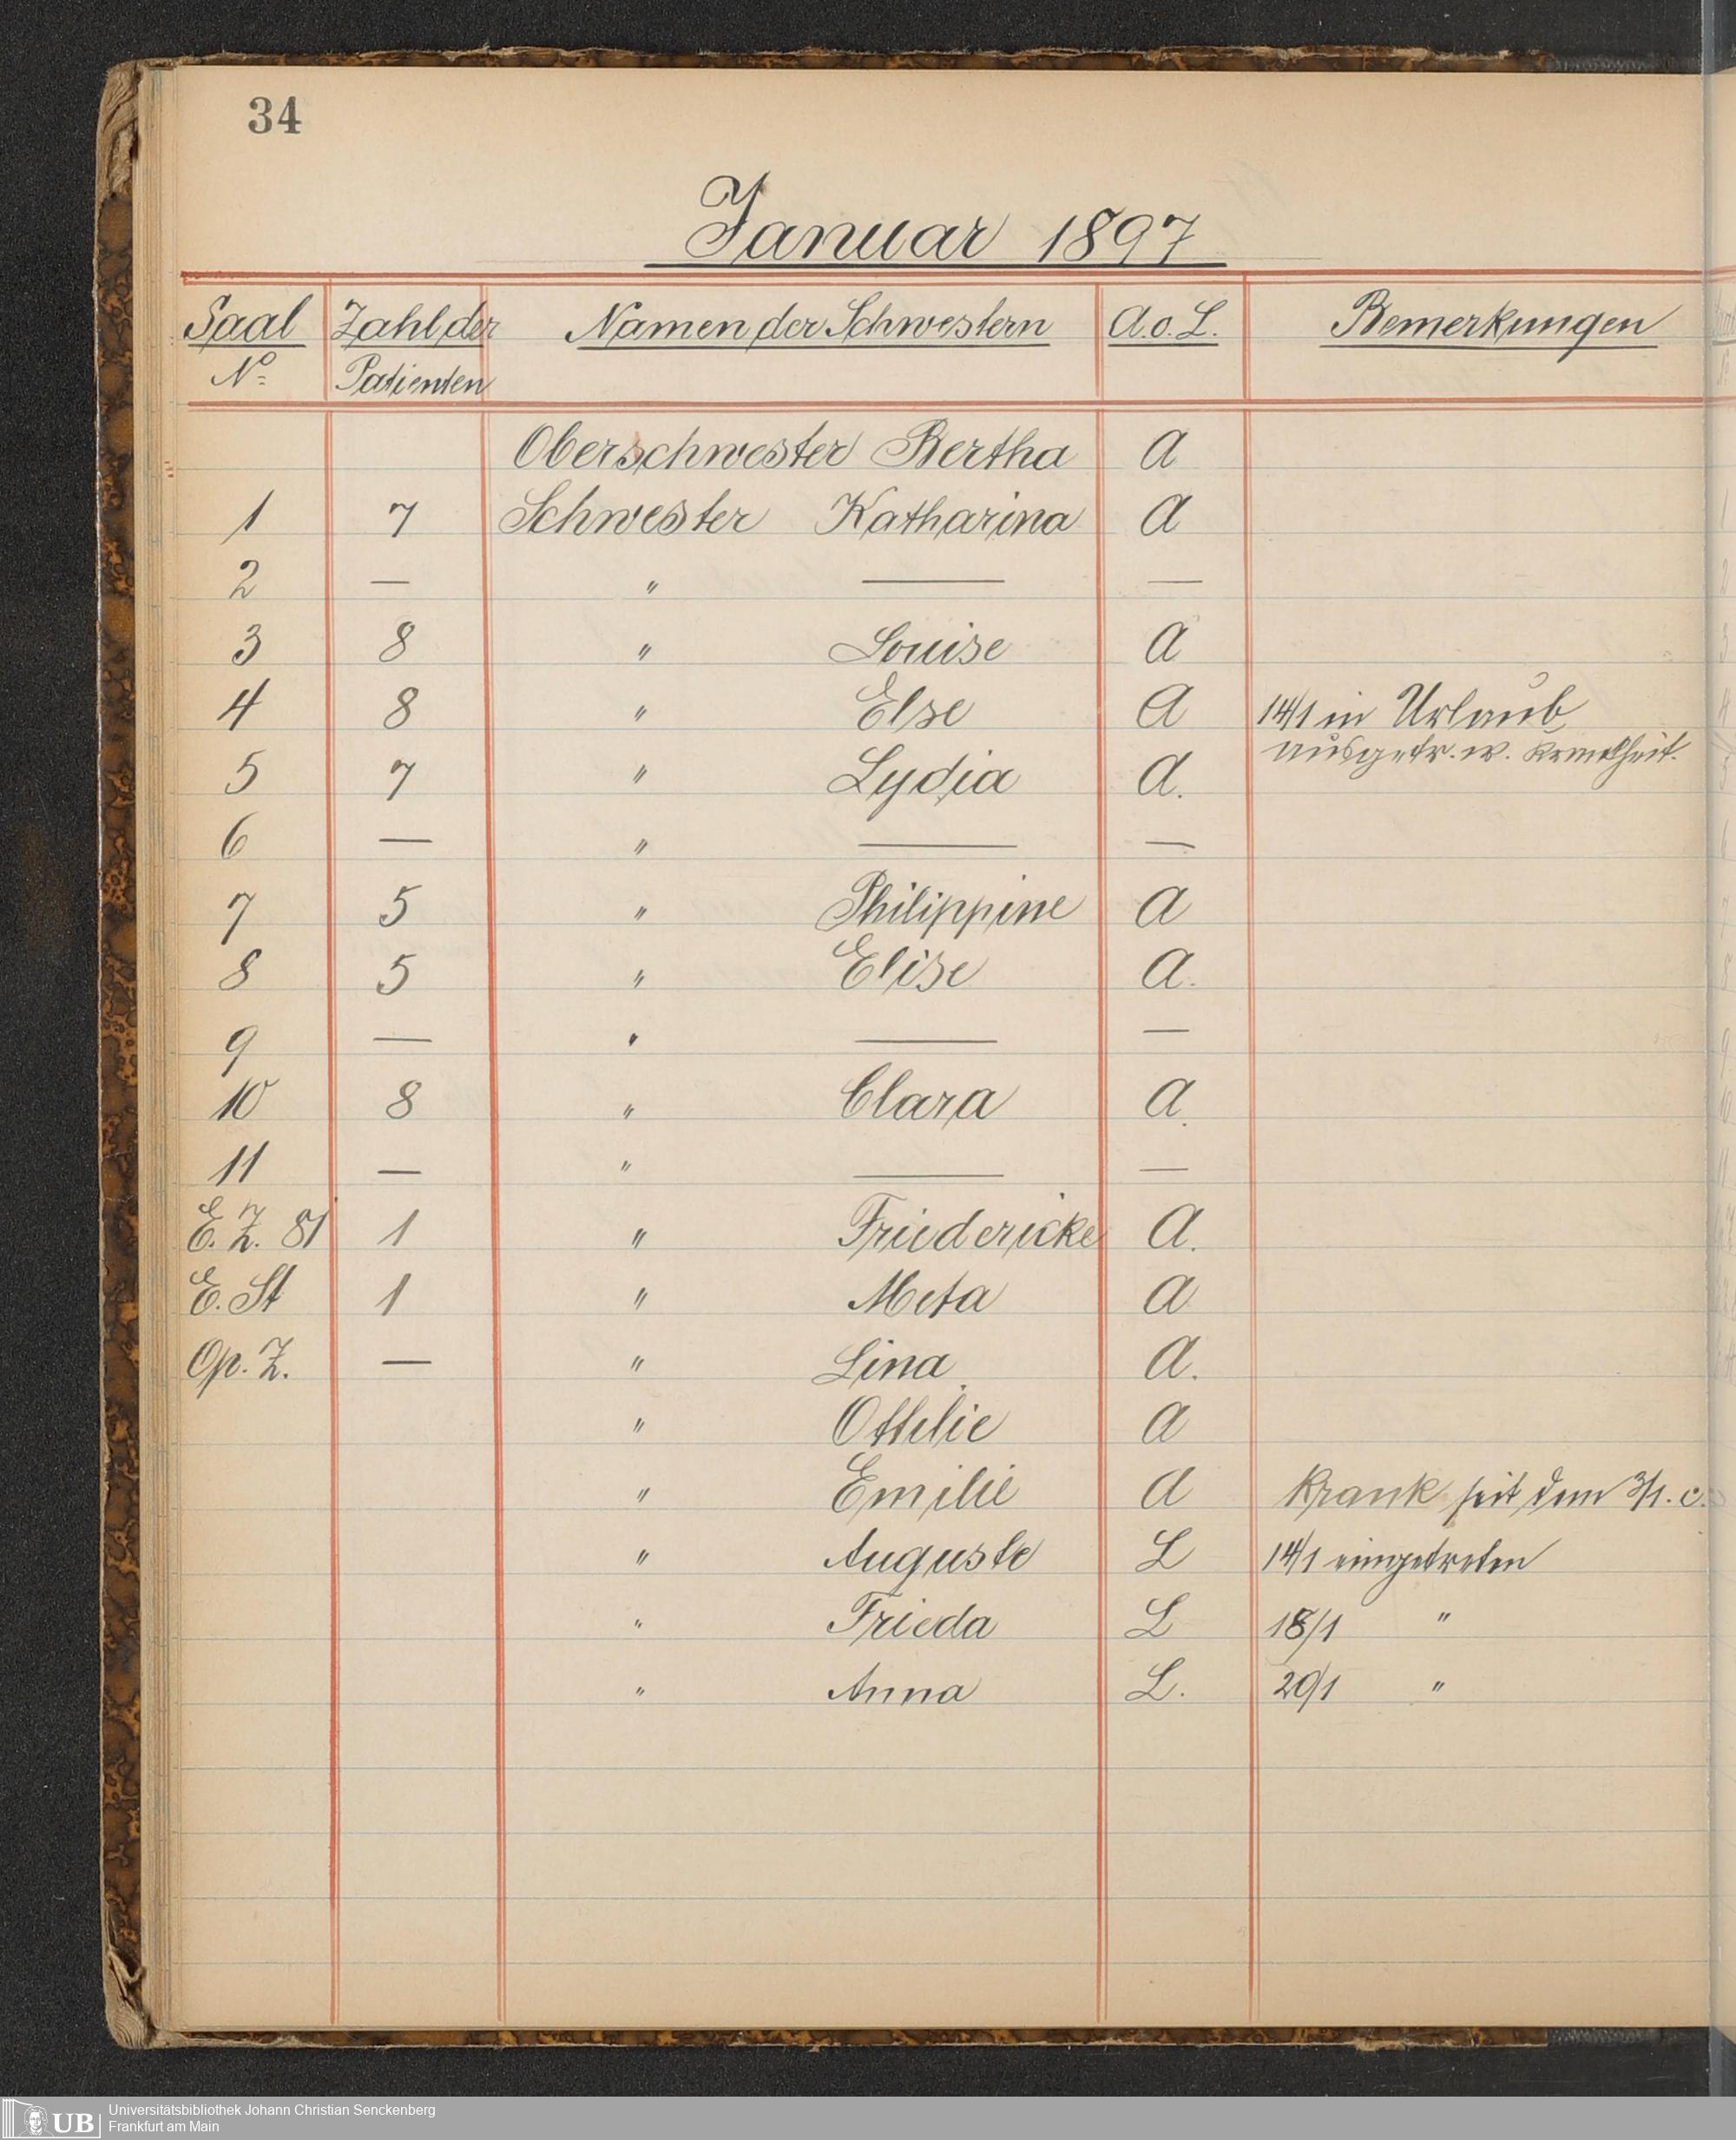 34
Januar 1897
Saal Zahl der Namen der Schwestern A. o. L. Bemerkungen
No Patienten
Oberschwester Bertha A
1 7 Schwester Katharina A
2 — " — —
3 8 " Louise A
4 8 " Else A 14/1 in Urlaub
ausgetr. w. Krankheit.
5 7 " Lydia A.
6 — " — —
7 5 " Philippine A
8 5 " Elise A.
9 — " — —
10 8 " Clara A.
11 — " — —
E. Z. 81 1 " Friedericke A.
E. St 1 " Meta A
Op. Z. — " Lina A.
" Ottilie A
" Emilie A Krank seit dem 3/1. c.
" Auguste L 14/1 eingetreten
" Frieda L 18/1 "
" Anna L. 20/1 "
UB Universitätsbibliothek Johann Christian Senckenberg
Frankfurt am Main